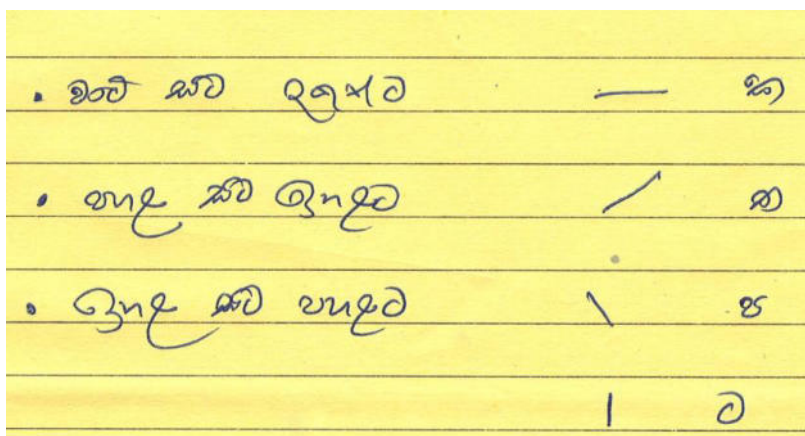 • වමේ සිට දකුණට — ක
• පහළ සිට ඉහළට / ත
• ඉහළ සිට පහළට \ ප
| ට